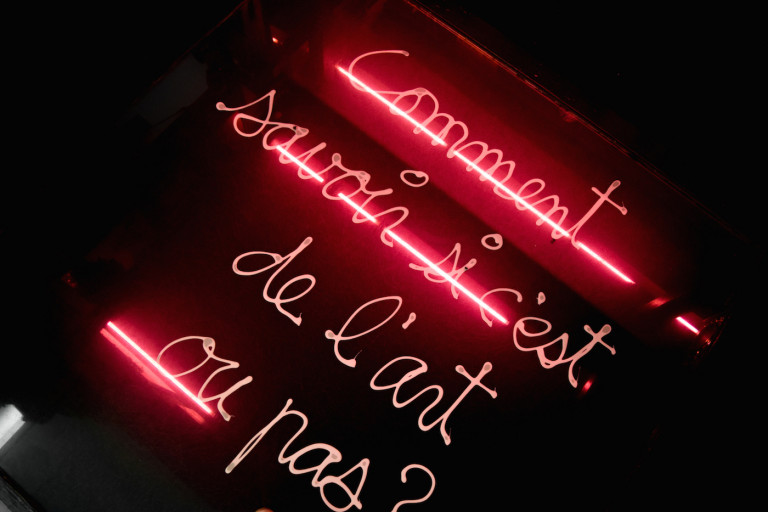 Comment
savoir si c'est
de l'art
ou pas?